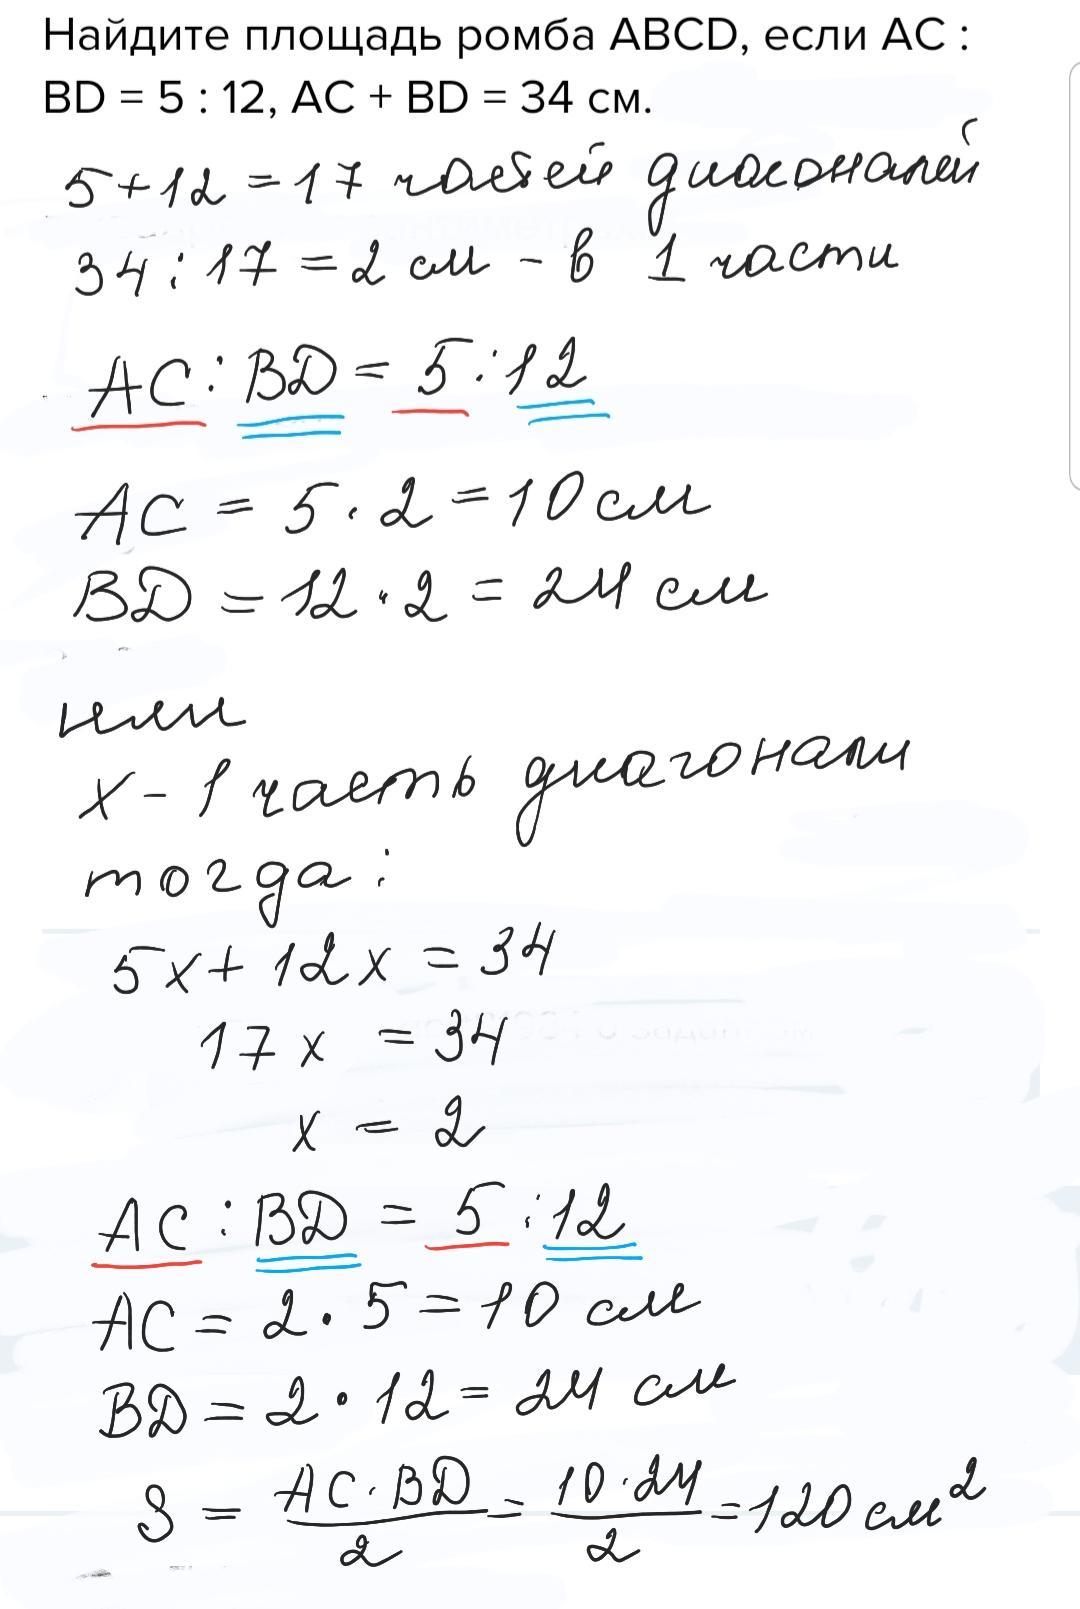 Найдите площадь ромба ABCD, если AC :
BD = 5 : 12, AC + BD = 34 см.
5+12 = 17 частей диагоналей
34 : 17 = 2 см - в 1 части
AC : BD = 5 : 12
AC = 5 · 2 = 10 см
BD = 12 · 2 = 24 см
или
x - 1 часть диагонали
тогда :
5x + 12x = 34
17x = 34
x = 2
AC : BD = 5 : 12
AC = 2 · 5 = 10 см
BD = 2 · 12 = 24 см
S = AC · BD / 2 = 10 · 24 / 2 = 120 см²